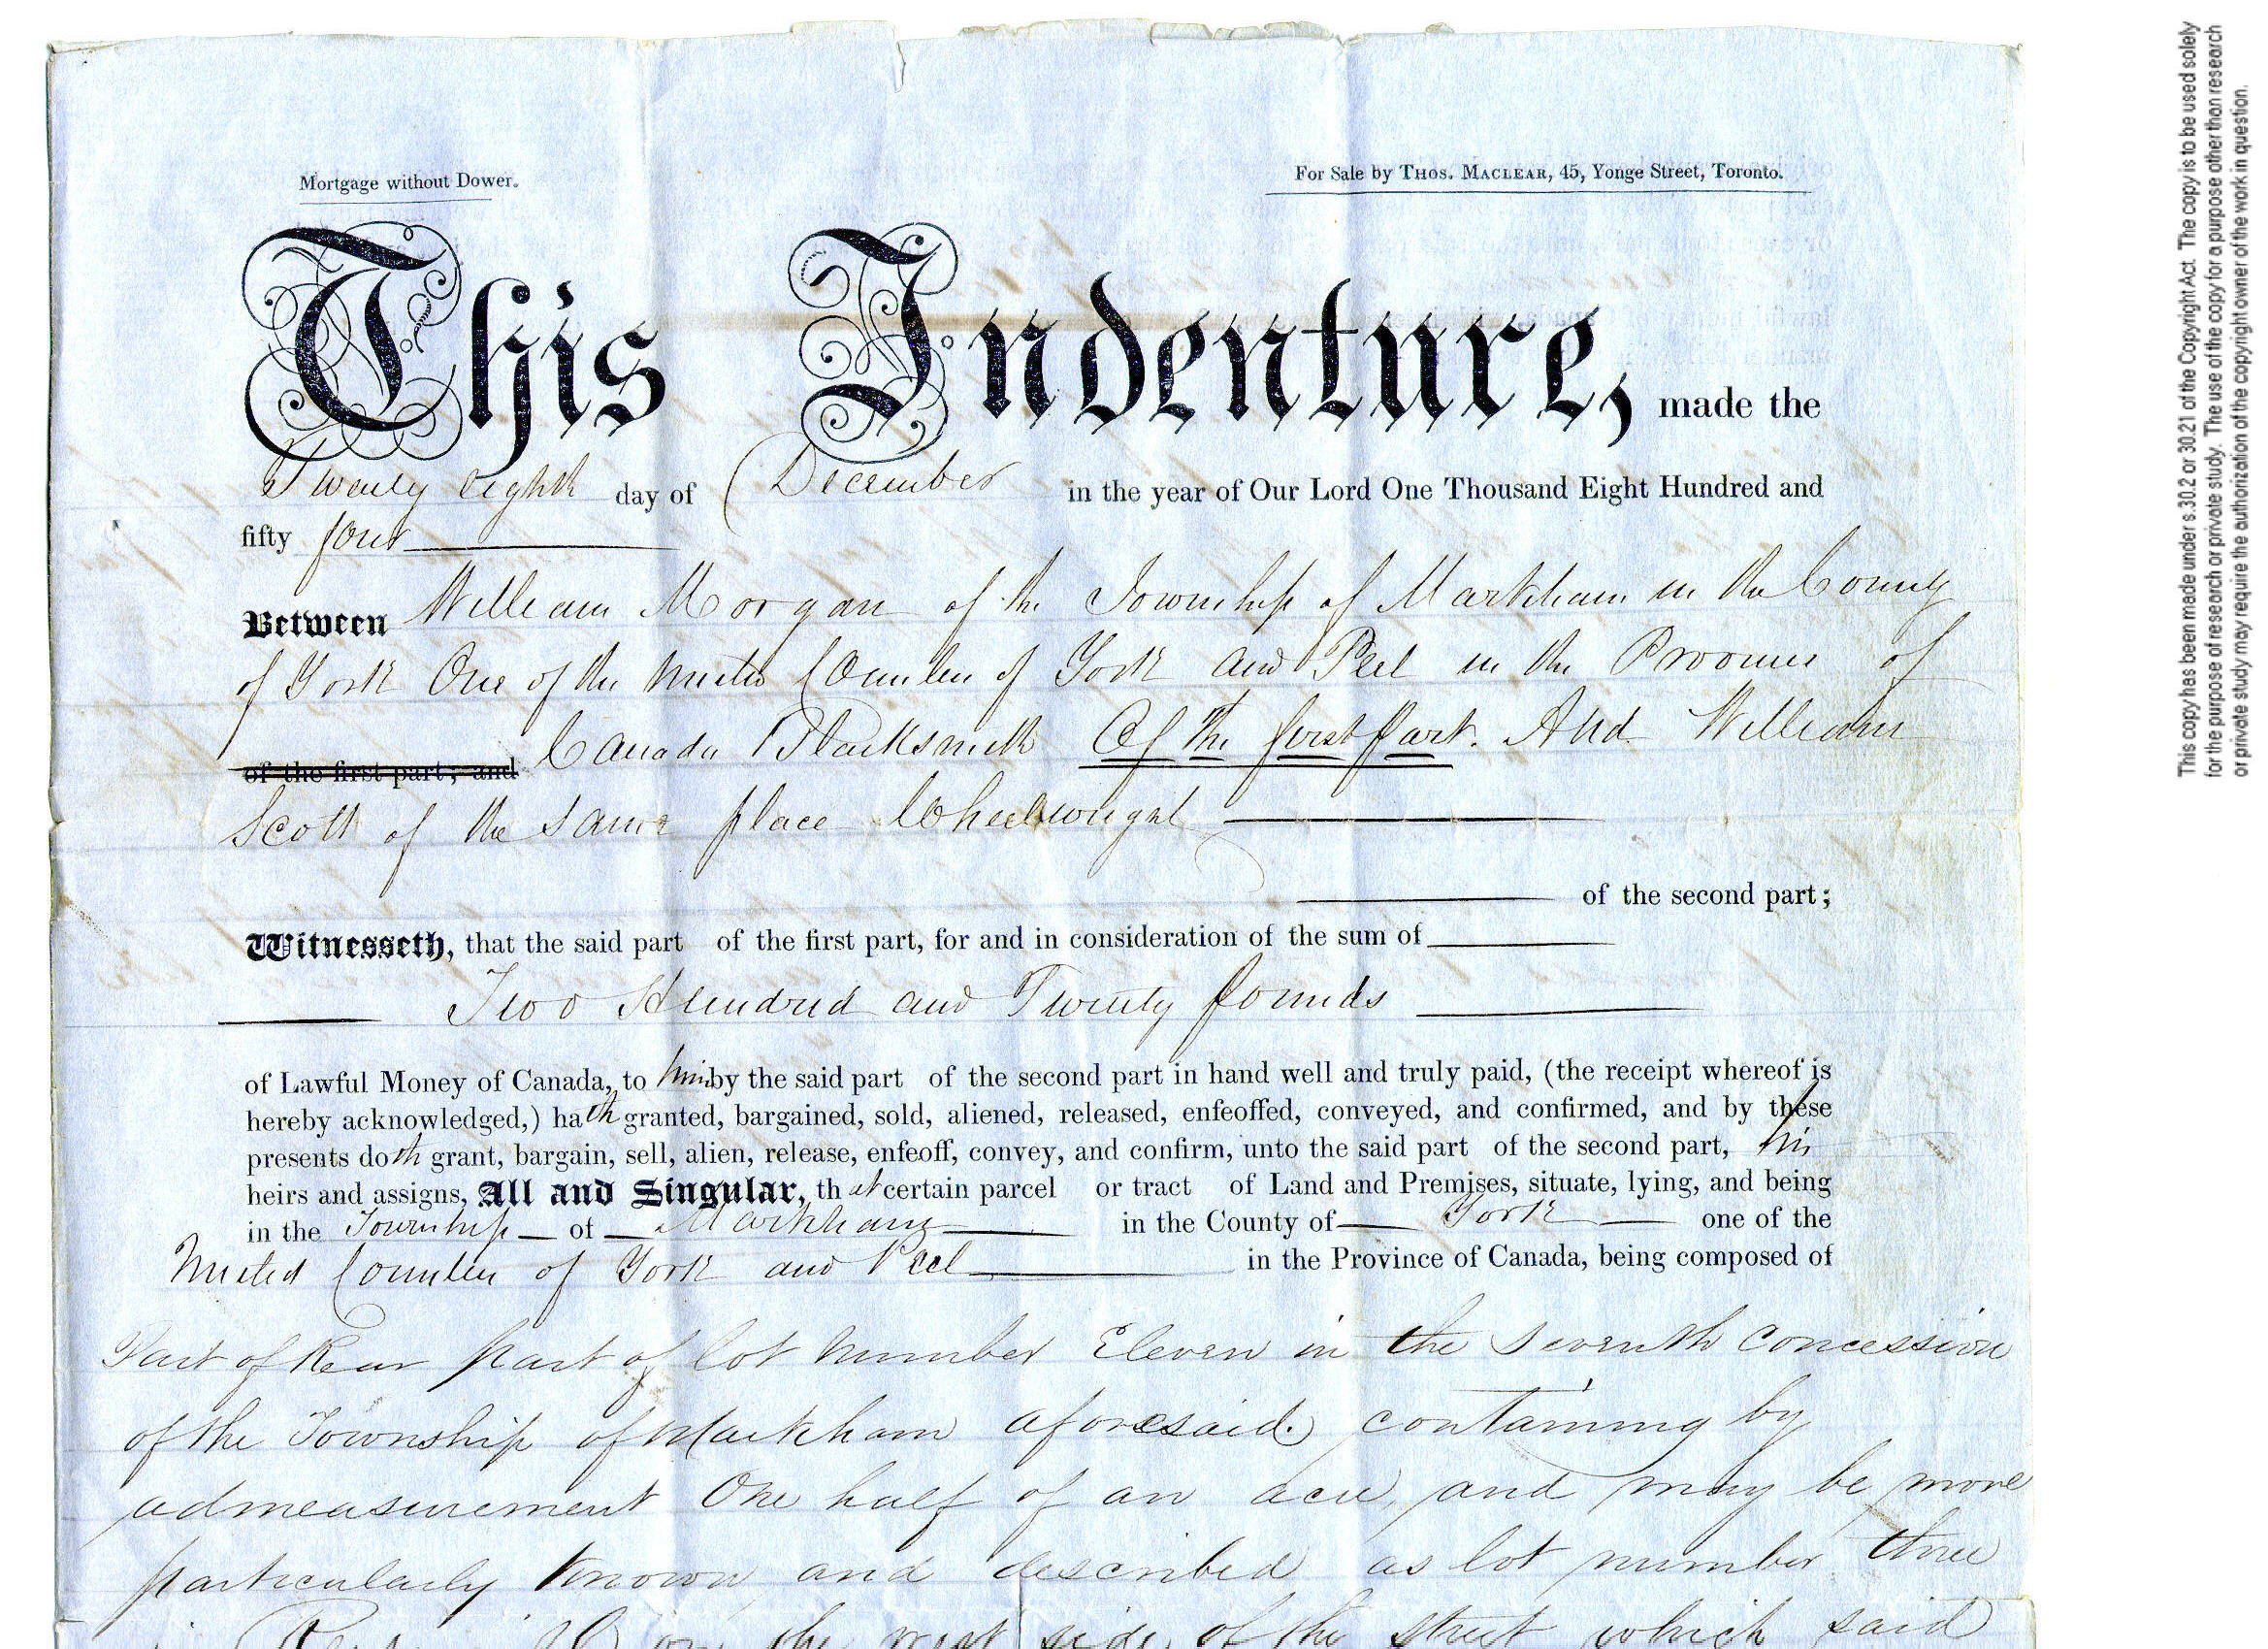 Mortgage without Dower.
For Sale by THOS. MACLEAR, 45, Yonge Street, Toronto.
This Indenture, made the
Twenty eighth day of December in the year of Our Lord One Thousand Eight Hundred and
fifty four
Between William Morgan of the Township of Markham in the County
of York One of the United Counties of York and Peel in the Province of
of the first part; and Canada Blacksmith Of the first part. And William
Scott of the same place Wheelwright
of the second part;
Witnesseth, that the said part of the first part, for and in consideration of the sum of
Two Hundred and Twenty pounds
of Lawful Money of Canada, to him by the said part of the second part in hand well and truly paid, (the receipt whereof is
hereby acknowledged,) hath granted, bargained, sold, aliened, released, enfeoffed, conveyed, and confirmed, and by these
presents doth grant, bargain, sell, alien, release, enfeoff, convey, and confirm, unto the said part of the second part, his
heirs and assigns, All and Singular, that certain parcel or tract of Land and Premises, situate, lying, and being
in the Township of Markham in the County of York one of the
United Counties of York and Peel in the Province of Canada, being composed of
Part of Rear part of lot number Eleven in the Seventh Concession
of the Township of Markham aforesaid. containing by
admeasurement One half of an acre, and may be more
particularly known and described as lot number three
on the west side of the street which said
This copy has been made under s.30.2 or 30.21 of the Copyright Act. The copy is to be used solely
for the purpose of research or private study. The use of the copy for a purpose other than research
or private study may require the authorization of the copyright owner of the work in question.